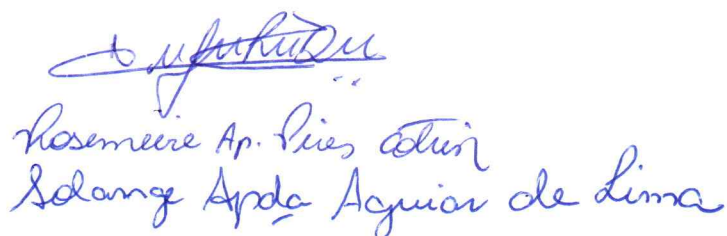 Rosemeire Ap. Pires Cotrin
Solange Apda Aguiar de Lima